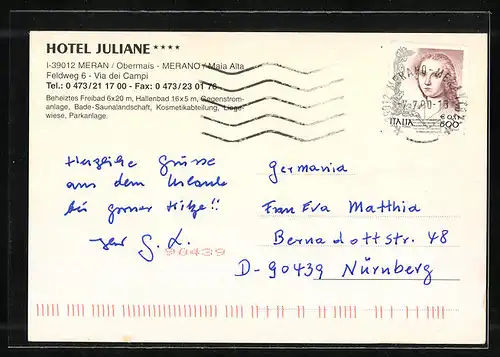 HOTEL JULIANE ****
I-39012 MERAN / Obermais - MERANO / Maia Alta
Feldweg 6 - Via dei Campi
Tel.: 0 473/21 17 00 - Fax: 0 473/23 01 76
Beheiztes Freibad 6x20 m, Hallenbad 16x5 m, Gegenstrom-
anlage, Bade-Saunalandschaft, Kosmetikabteilung, Liege-
wiese, Parkanlage.
ITALIA
800
Herzliche Grüsse
aus dem Urlaube
bei grosser Hitze!!
G. L.
90439
Germania
Frau Eva Matthia
Bernadottstr. 48
D-90439 Nürnberg